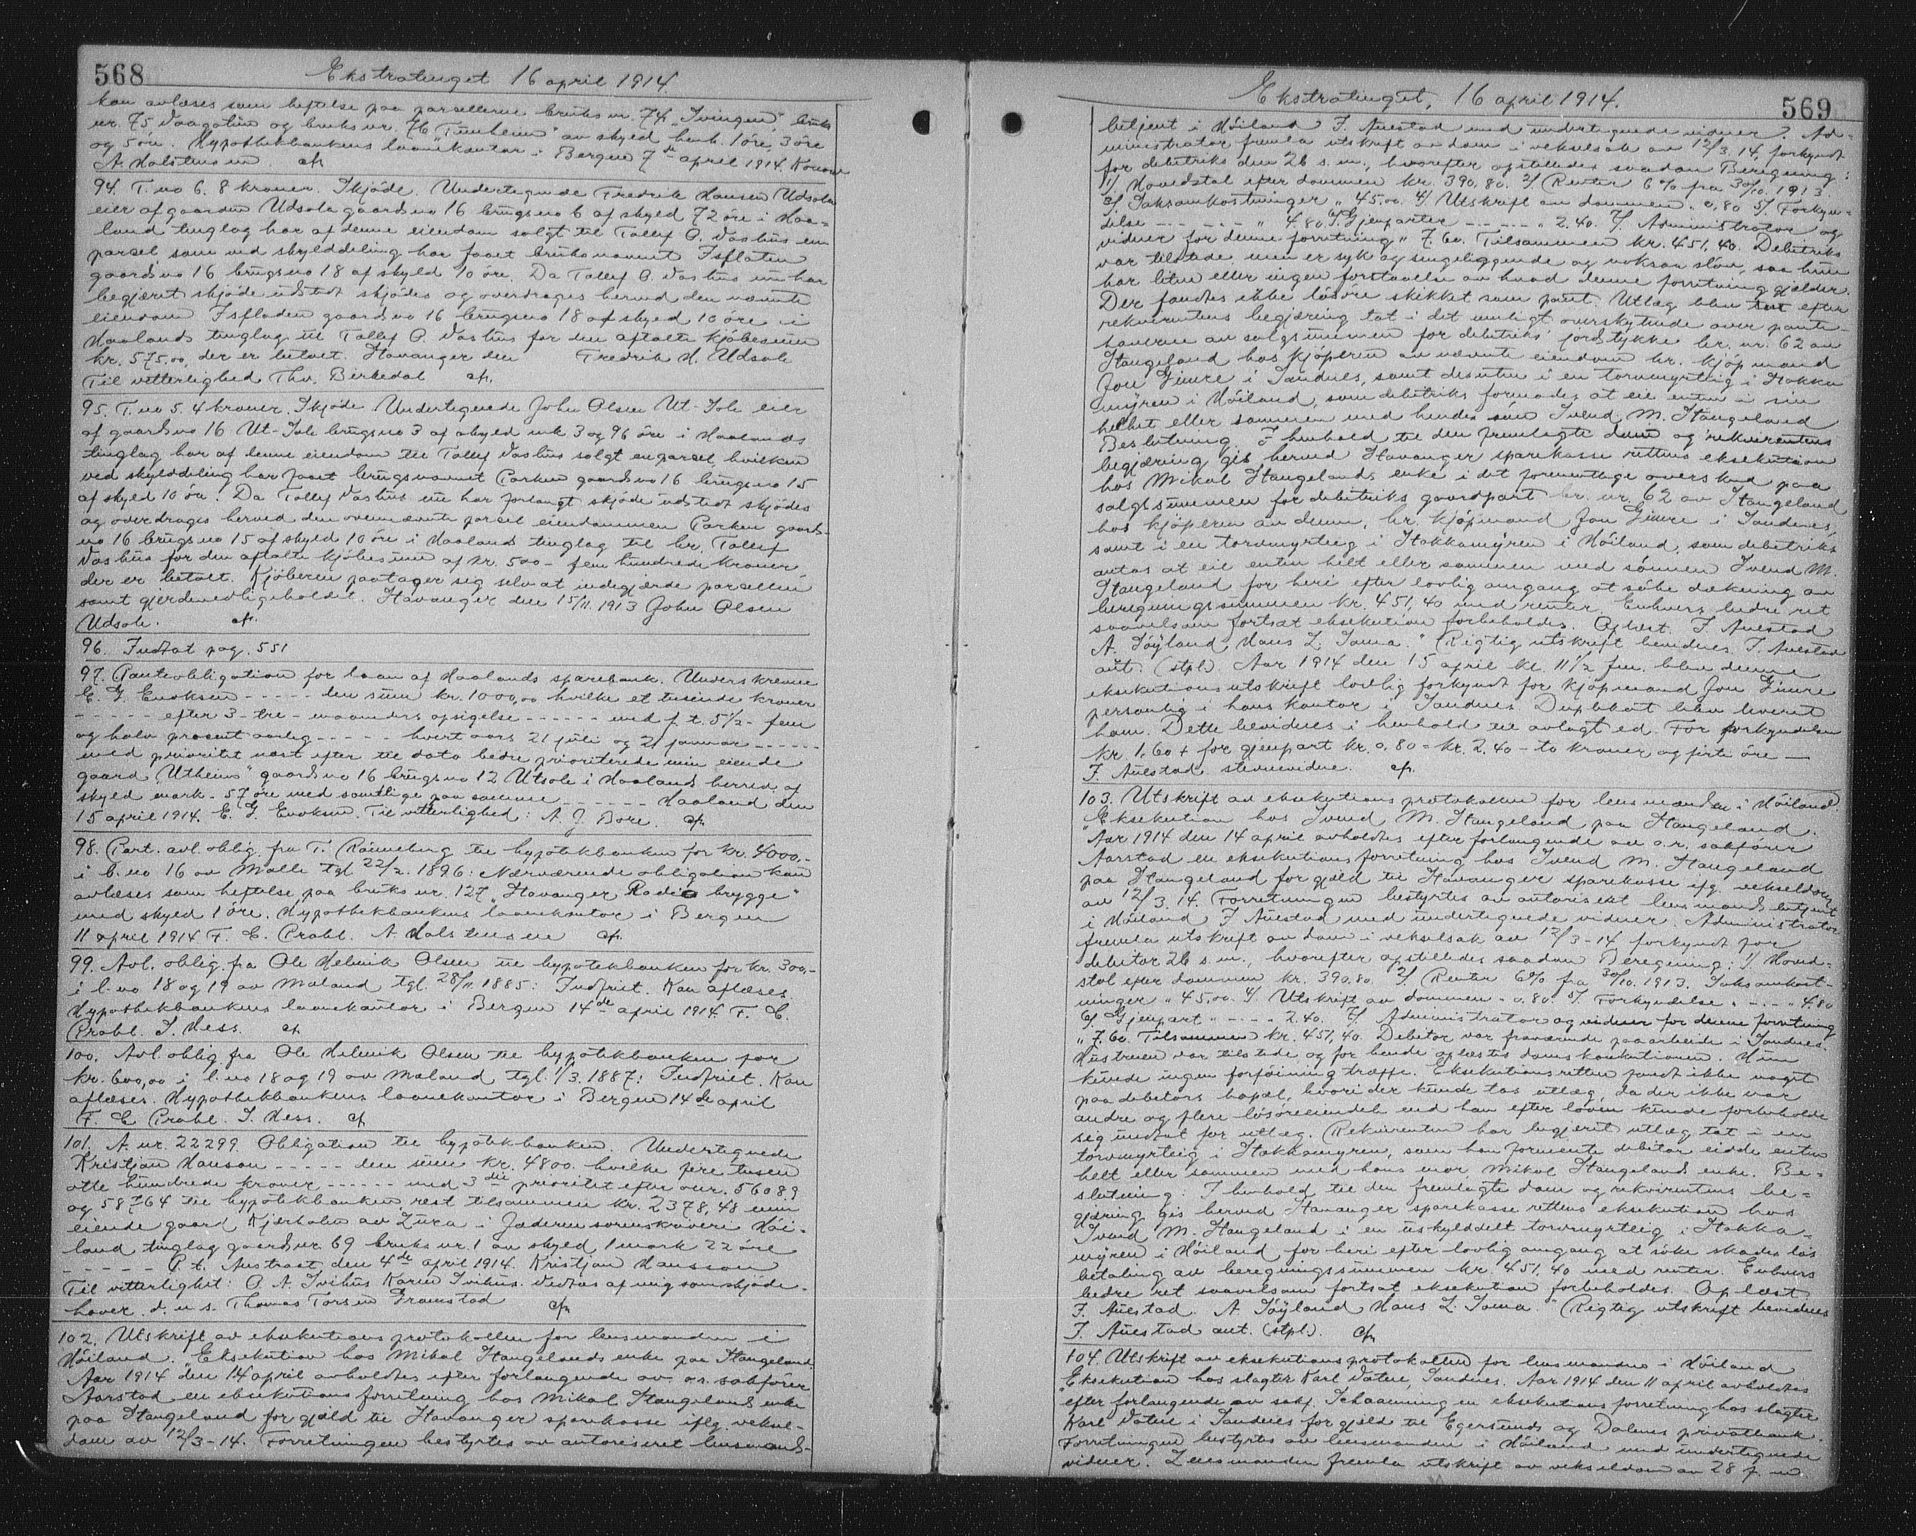 568
Ekstratinget 16 april 1914.
kan avlæses som heftelse paa parcellerne bruks nr. 74 "Svingen", bruks
nr. 75 Vaagatun og bruks nr. 76 "Tunheim" av skyld henh. 1 øre, 3 øre
og 5 øre. Hypothekbankens laanekontor i Bergen 7de april 1914. Konow
A. Halstensen. cf.
94. T. no 6. 8 kroner. Skjøde. Undertegnede Fredrik Hansen Udsola
eier af gaarden Udsola gaards no 16 brugs no 6 af skyld 72 øre i Haa-
land tinglag har af denne eiendom solgt til Tollef O. Vashus en
parcel, som ved skylddeling har faaet bruksnavnet Isflaten
gaards no 16 brugs no 18 af skyld 10 øre. Da Tollef O. Vashus nu har
begjæret skjøde udstedt skjødes og overdrages herved den nævnte
eiendom Isfladen gaards no 16 brugs no 18 af skyld 10 øre i
Haalands tinglag til Tollef O. Vashus for den aftalte kjøbesum
kr. 575,00, der er betalt. Stavanger den Fredrik H. Udsole
Til vitterlighed Thv. Birkedal cf.
95. T. no 5. 4 kroner. Skjøde Undertegnede John Olsen Ut-Sole eier
af gaards no 16 Ut-Sole brugs no 3 af skyld mk 3 og 96 øre i Haalands
tinglag har af denne eiendom til Tollef Vashus solgt en parcel hvilken
ved skylddeling har faaet brugsnavnet Parken gaards no 16 brugs no 15
af skyld 10 øre. Da Tollef Vashus nu har forlangt skjøde udstedt skjødes
og overdrages herved den ovennævnte parcel eiendommen Parken gaards-
no 16 brugs no 15 af skyld 10 øre i Haaland tinglag til hr. Tollef
Vashus for den aftalte kjøbesum af kr. 500 - fem hundrede kroner,
der er betalt. Kjøberen paatager sig selv at indegjærde parcellen
samt gjerdenes vedligeholdet. Stavanger den 15/11. 1913 John Olsen
Udsole. cf.
96. Indtat pag. 551
97. Panteobligation for laan af Haalands sparebank. Underskrevne
E. G. Enoksen - - - - - den sum kr. 1000,00 hvilke et tusende kroner
- - - - - efter 3 - tre - maaneders opsigelse - - - - - med p. t. 5 1/2 - fem
og halv procent aarlig - - - - - hvert aars 21 juli og 21 januar - - - - -
med prioritet næst efter til dato bedre prioriterede min eiende
gaard "Utheim" gaards no 16 brugs no 12 Utsole i Haalands herred af
skyld mark - 57 øre med samtlige paa samme - - - - - Haaland den
15 april 1914. E. G. Enoksen. Til vitterlighed: A. J. Bore. cf.
98. Part. avl. oblig. fra T. Rönneberg til hypotekbanken for kr. 4000,-
i l. no 16 av Malle tgl 22/2. 1896: Nærværende obligation kan
avlæses som heftelse paa bruks nr. 127 "Stavanger Radio brygge"
med skyld 1 øre. Hypothekbankens laanekontor i Bergen
11 april 1914 F. C. Prahl. A Halstensen cf.
99. Avl. oblig. fra Ole Helmik Olsen til hypotekbanken for kr. 300,-
i l. no 18 og 19 av Maland tgl. 28/11. 1885: Indfriet. Kan aflæses.
Hypothekbankens laanekontor i Bergen 14de april 1914 F. C.
Prahl. J. Hess. cf.
100. Avl oblig. fra Ole Helmik Olsen til hypotekbanken for
kr. 600,00 i l. no 18 og 19 av Maland tgl. 1/3. 1887: Indfriet. Kan
aflæses. Hypothekbankens laanekontor i Bergen 14de april
F. C. Prahl. J. Hess. cf
101. A. nr. 22299. Obligation til hypotekbanken. Undertegnede
Kristjan Hanson - - - - - den sum kr. 4800. hvilke fire tusen
otte hundrede kroner - - - - - med 3die prioritet efter ovnr. 56089
og 58764 til hypotekbanken rest tilsammen kr. 2378,48 min
eiende gaard Kjerholen av Lura i Jæderen sorenskriveri Höi-
land tinglag gaards nr. 69 bruks nr. 1 av skyld 1 mark 22 øre
- - - - - P. t. Austraat den 4de april 1914. Kristjan Hansson
Til vitterlighet: O. A. Svihus Karen Svihus. Vedtas af mig som skjøde-
haver. d. u. s. Thomas Torsen Gramstad cf.
102. Utskrift av eksekutionsprotokollen for lensmanden i
Høiland. "Eksekution hos Mikal Stangelands enke paa Stangeland.
Aar 1914 den 14 april avholdtes efter forlangende av o.r. sakfører
Aarstad en eksekutionsforretning hos Mikal Stangelands enke
paa Stangeland for gjæld til Stavanger sparekasse iflg. veksel-
dom av 12/3-14. Forretningen bestyrtes av autoriseret lensmands-
569
Ekstratinget, 16 april 1914.
betjent i Høiland J. Auestad med undertegnede vidner. Ad-
ministrator fremla utskrift av dom i vekselsak av 12/3. 14, forkyndt
for debitriks den 26 s. m., hvorefter opstilledes saadan Beregning:
1/ Hovedstol efter dommen kr. 390,80. 2/ Renter 6% fra 30/10. 1913
3/ Saksomkostninger " 45,00. 4/ Utskrift av dommen " 0,80 5/ Forkyn-
delse - - - - - " 4.80 6/ Gjenparter - - - - - " 2.40. 7/ Administrator og
vidner for denne forretning " 7.60. Tilsammen kr. 451,40. Debitriks
var tilstede, men er syk og sengeliggende og noksaa sløv, saa hun
har liten eller ingen forstaaelse av hvad denne forretning gjælder.
Der fandtes ikke løsøre skikket som pant. Utlæg blev tat efter
rekvirentens begjæring tat i det mulig overskytende over pante-
haverne av salgssummen for debitriks jordstykke br. nr. 62 av
Stangeland hos kjøperen av nævnte eiendom hr. kjøpmand
Jon Gimre i Sandnes, samt desuten i en torvmyrteig i Stokka
myren i Høiland, som debitriks formodes at eie enten i sin
helhet eller sammen med hendes søn Svend M. Stangeland
Beslutning. I henhold til den fremlagte dom og rekvirentens
begjæring gis herved Stavanger sparekasse rettens eksekution
hos Mikal Stangelands enke i det forventede overskud paa
salgssummen for debitriks gaardpart br. nr. 62 av Stangeland
hos kjøperen av denne, hr. kjøpmand Jon Gimre i Sandnes,
samt i en torvmyrteig i Stokkamyren i Høiland, som debitriks
antas at eie enten helt eller sammen med sønnen Svend M.
Stangeland for heri efter lovlig omgang at søke dækning av
beregningssummen kr. 451,40 med renter. Enhvers bedre ret
saavelsom fortsat eksekution forbeholdes. Oplæst. J. Auestad
A. Søyland Hans L. Soma." Rigtig utskrift bevidnes J. Auestad
aut. (stpl). Aar 1914 den 15 april kl. 11 1/2 fm. blev denne
eksekutionsutskrift lovlig forkyndt for kjøpmand Jon Gimre
personlig i hans kontor i Sandnes. Duplikat blev leveret
ham. Dette bevidnes i henhold til avlagt ed. For forkyndelsen
kr. 1,60 + for gjenpart kr. 0,80 = kr. 2.40 - to kroner og firti øre -
J. Auestad. stevnevidne. cf.
103. Utskrift av eksekutionsprotokollen for lensmanden i Høiland.
"Eksekution hos Svend M. Stangeland paa Stangeland.
Aar 1914 den 14 april avholdtes efter forlangende av o.r. sakfører
Aarstad en eksekutionsforretning hos Svend M. Stangeland
paa Stangeland for gjæld til Stavanger sparekasse iflg. vekseldom
av 12/3. 14. Forretningen bestyrtes av autoriseret lensmandsbetjent
i Høiland J. Auestad med undertegnede vidner. Administrator
fremla utskrift av dom i vekselsak av 12/3-14 forkyndt for
debitor 26 s. m., hvorefter opstilledes saadan Beregning: 1/ Hoved-
stol efter dommen kr. 390,80 2/ Renter 6% fra 30/10. 1913. Saksomkost-
ninger " 45,00. 4/ Utskrift av dommen " 0,80. 5/ Forkyndelse " - - - " 4.80
6/ Gjenpart " - - - - 2.40. 7/ Administrator og vidner for denne forretning
" 7.60. Tilsammen kr. 451,40. Debitor var fraværende paa arbeide i Sandnes.
Hustruen var tilstede, og for hende oplæstes domskonklusionen. Hun
kunde ingen forføining træffe. Eksekutionsretten fandt ikke noget
paa debitors bopæl, hvori der kunde tas utlæg, da der ikke var
andre og flere løsøreeiendele end han efter loven kunde forbeholde
sig undtat for utlæg. Rekvirenten har begjæret utlæg tat i en
torvmyrteig i Stokkamyren, som han formente debitor eiede enten
helt eller sammen med hans mor Mikal Stangelands enke. Be-
slutning: I henhold til den fremlagte dom og rekvirentens be-
gjæring gis herved Stavanger sparekasse rettens eksekution hos
Svend M. Stangeland i en uskylddelt torvmyrteig i Stokka-
myren i Høiland for heri efter lovlig omgang at søke skadesløs
betaling av beregningssummen kr. 451,40 med renter. Enhvers
bedre ret saavelsom fortsat eksekution forbeholdes. Oplæst
J. Auestad. A. Søyland Hans L. Soma." Rigtig utskrift bevidnes
J. Auestad aut. (stpl). cf.
104. Utskrift av eksekutionsprotokollen for lensmanden i Høiland
"Eksekution hos slagter Karl Vatne, Sandnes. Aar 1914 den 11 april avholdtes
efter forlangende av sakf. Schaanning en eksekutionsforretning hos slagter
Karl Vatne i Sandnes for gjæld til Egersunds og Dalenes privatbank.
Forretningen bestyrtes av lensmanden i Høiland med undertegnede
vidner. Lensmanden fremla utskrift av vekseldom av 28 f. m.